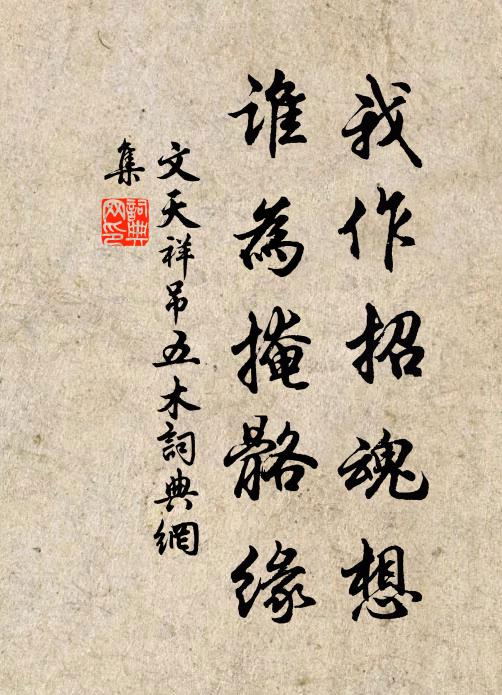 我作招魂想
誰為掩骼緣
文天祥吊五木詞典網
集
詞典網印